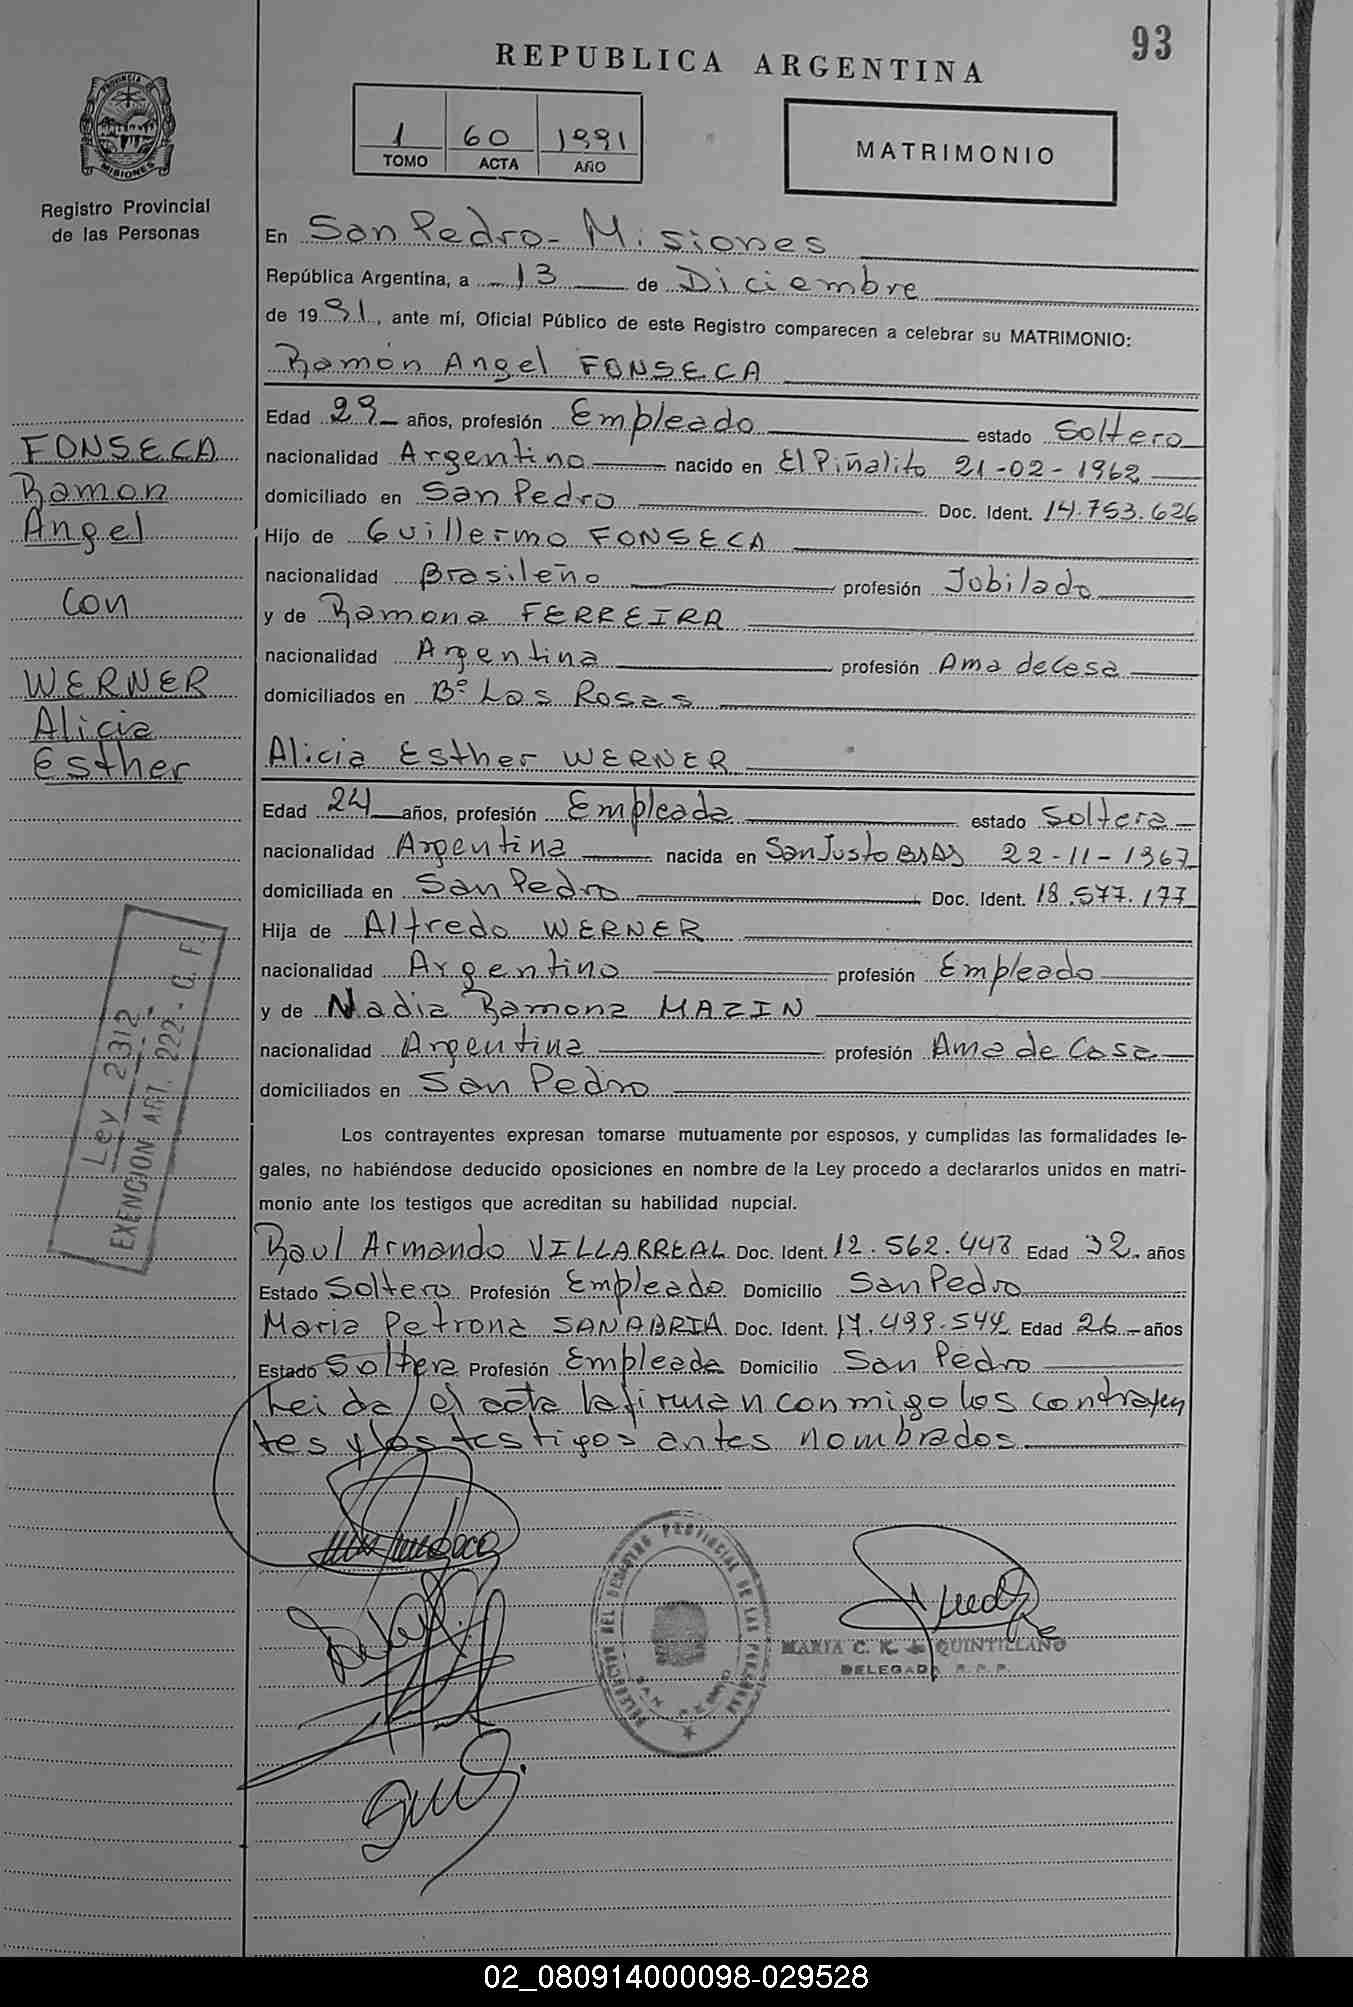 93
REPUBLICA ARGENTINA
1 60 1991
TOMO ACTA AÑO
MATRIMONIO
PROVINCIA DE
MISIONES
Registro Provincial
de las Personas
En San Pedro - Misiones
República Argentina, a 13 de Diciembre
de 1991, ante mí, Oficial Público de este Registro comparecen a celebrar su MATRIMONIO:
Ramón Angel FONSECA
Edad 29 años, profesión Empleado estado Soltero
nacionalidad Argentino nacido en El Piñalito 21-02-1962
domiciliado en San Pedro Doc. Ident. 14.753.626
Hijo de Guillermo FONSECA
nacionalidad Brasileño profesión Jubilado
y de Ramona FERREIRA
nacionalidad Argentina profesión Ama de Casa
domiciliados en Bº Las Rosas
Alicia Esther WERNER
Edad 24 años, profesión Empleada estado Soltera
nacionalidad Argentina nacida en San Justo BsAs 22-11-1967
domiciliada en San Pedro Doc. Ident. 18.577.177
Hija de Alfredo WERNER
nacionalidad Argentino profesión Empleado
y de Nadia Ramona MAZIN
nacionalidad Argentina profesión Ama de Casa
domiciliados en San Pedro
Los contrayentes expresan tomarse mutuamente por esposos, y cumplidas las formalidades le-
gales, no habiéndose deducido oposiciones en nombre de la Ley procedo a declararlos unidos en matri-
monio ante los testigos que acreditan su habilidad nupcial.
Raul Armando VILLARREAL Doc. Ident. 12.562.448 Edad 32 años
Estado Soltero Profesión Empleado Domicilio San Pedro
Maria Petrona SANABRIA Doc. Ident. 17.499.544 Edad 26 años
Estado Soltera Profesión Empleada Domicilio San Pedro
Leida el acta la firman conmigo los contrayen
tes y los testigos antes nombrados
FONSECA
Ramon
Angel
Con
WERNER
Alicia
Esther
Ley 2312
EXENCION ART. 222 - C. F.
DELEGACION DEL REGISTRO PROVINCIAL DE LAS PERSONAS
SAN PEDRO
MARIA C. K. de QUINTILLANO
DELEGADA R.P.P.
02_080914000098-029528